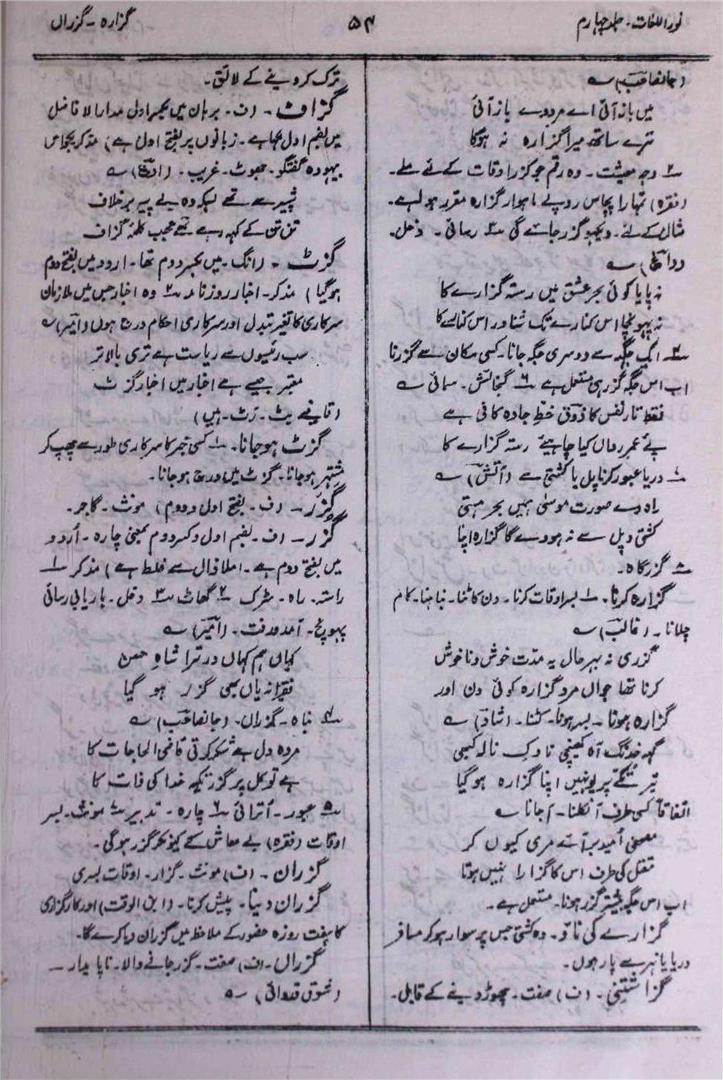 نور اللغات۔ جلد چہارم
۵۴
گزارہ۔ گزراں
(جانصاحب) ؎
میں باز آئی اے مردوے باز آئی
ترے ساتھ میرا گزارہ نہ ہوگا
۳ وجہ معیشت۔ وہ رقم جو گزر اوقات کے لئے ملے۔
(فقرہ) تمہارا پچاس روپے ماہوار گزارہ مقرر ہوا ہے۔
مثال کے لئے۔ دیکھو گزر جائے گی ۴ رسائی۔ دخل۔
؎
نہ پایا کوئی بحر عشق میں رستہ گزارے کا
نہ پہونچا اس کنارے تک شناور اس کنارے کا
۵ ایک جگہ سے دوسری جگہ جانا۔ کسی مکان سے گزرنا
اب اس جگہ گزر ہی مستعمل ہے ۶ گنجائش۔ سمائی ؎
فقط تار نفس کا ذوق خطِ جادہ کافی ہے
پئے عمر رواں کیا چاہیئے رستہ گزارے کا
۷ دریا عبور کرنا پل یا کشتی سے (آتش) ؎
راہ دے صورت موسیٰ ہمیں بحر ہستی
کشتی و پل سے نہ ہووے گا گزارہ اپنا
۸ گزرگاہ۔
گزارہ کرنا۔ ۱ بسر اوقات کرنا۔ دن کاٹنا۔ نباہنا۔ کام
چلانا۔ (غالب) ؎
گزری نہ بہرحال یہ مدت خوش و ناخوش
کرنا تھا جواں مرد گزارہ کوئی دن اور
گزارہ ہونا۔ بسر ہونا۔ کٹنا۔ (شاد) ؎
گہہ خدنگ آہ کھینچی ناوک نالہ کبھی
تیر تکّے پر یونہیں اپنا گزارہ ہوگیا
اتفاقاً کسی طرف آ نکلنا۔ آجانا ؎
مصحفی اُمید بر آئے مری کیوں کر
مقتل کی طرف اس کا گزارا نہیں ہوتا
اب اس جگہ بیشتر گزر ہونا۔ مستعمل ہے۔
گزارے کی ناؤ۔ وہ کشتی جس پر سوار ہوکر مسافر
دریا یا نہر سے پار ہوں۔
گزاشتنی۔ (ف) صفت۔ چھوڑ دینے کے قابل۔
ترک کردینے کے لائق۔
گزاف۔ (ف۔ برہان میں بکسر اول مدار الافاضل
میں بضم اول لکھا ہے۔ زبانوں پر بفتح اول ہے) مذکر بکواس
بیہودہ گفتگو۔ جھوٹ۔ غریب۔ ؎
تن تن کے کہہ رہے تھے عجب کلمہ گزاف
گزٹ۔ (انگ۔ میں بکسر دوم تھا۔ اردو میں بفتح دوم
ہوگیا) مذکر۔ اخبار روزنامہ ۲ وہ اخبار جس میں ملازمان
سرکاری کا تغیر تبدل اور سرکاری احکام درج ہوں (امیر) ؎
سب رئیسوں سے ریاست ہے تری بالاتر
معتبر جیسے ہے اخبار میں اخبار گزٹ
(قافیے پٹ۔ رَٹ۔ ہیں)
گزٹ ہو جانا۔ ۱ کسی خبر کا سرکاری طور سے چھپ کر
مشتہر ہو جانا۔ گزٹ میں درج ہو جانا۔
گزر۔ (ف۔ بفتح اول و دوم) مونث۔ گاجر۔
گزر۔ (ف۔ بضم اول و کسر دوم بمعنی چارہ۔ اُردو
میں بفتح دوم ہے۔ املا ذال سے غلط ہے) مذکر ۱
راستہ۔ راہ۔ سڑک ۲ گھاٹ ۳ دخل۔ باریابی رسائی
پہونچ۔ آمد و رفت۔ (امیر) ؎
کہاں ہم کہاں در ترا شاہِ حسن
فقیرانہ یاں بھی گزر ہو گیا
۴ نباہ۔ گزران۔ (جانصاحب) ؎
مردہ دل ہے شکر کرتی قاضی الحاجات کا
ہے توکل پر گزر تکیہ خدا کی ذات کا
۵ عبور۔ اُترائی ۶ چارہ۔ تدبیر مونث۔ بسر
اوقات (فقرہ) بے معاش کے کیونکر گزر ہوگی۔
گزران۔ (ف) مونث۔ گزار۔ اوقات بسری
گزران دینا۔ پیش کرنا۔ (ابن الوقت) اور کارگزاری
کا ہفت روزہ حضور کے ملاحظہ میں گزران دیا کرے گا۔
گزراں۔ (ف) صفت۔ گزر جانے والا۔ ناپایدار۔
(شوق قدوائی) ؎